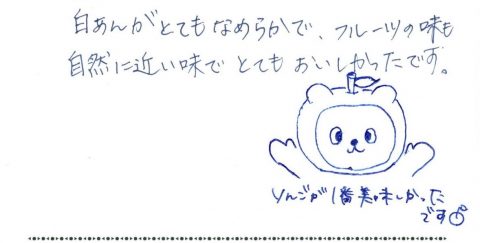 白あんがとてもなめらかで、フルーツの味も
自然に近い味でとてもおいしかったです。
りんごが1番美味しかった
です